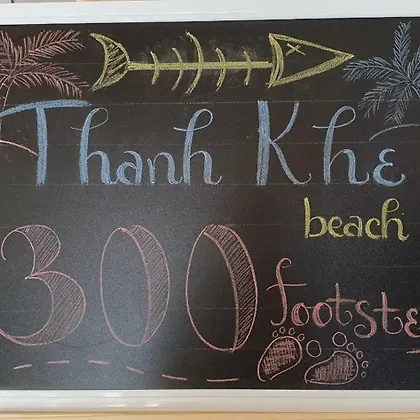 Thanh Khê
beach
300 footste